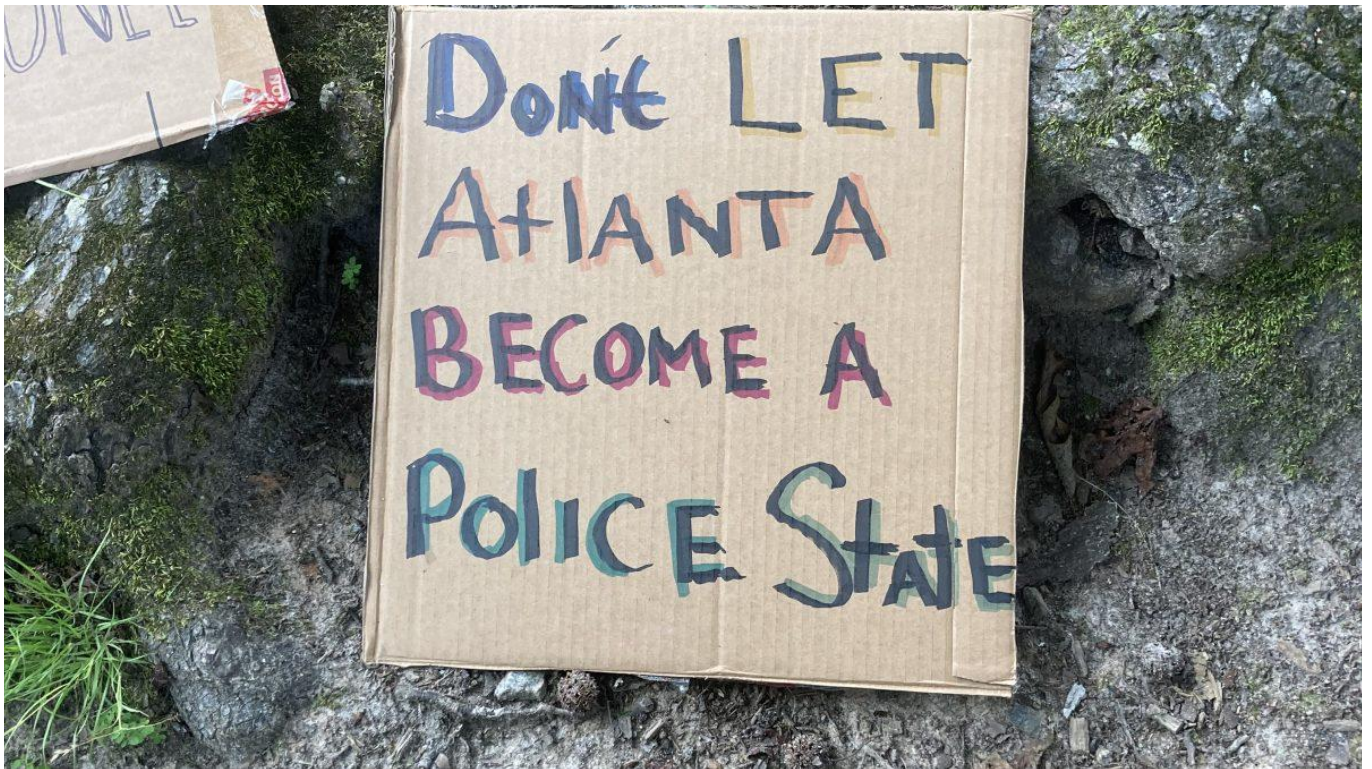 DON'T LET
AtlANTA
BECOME A
POlICE StAtE